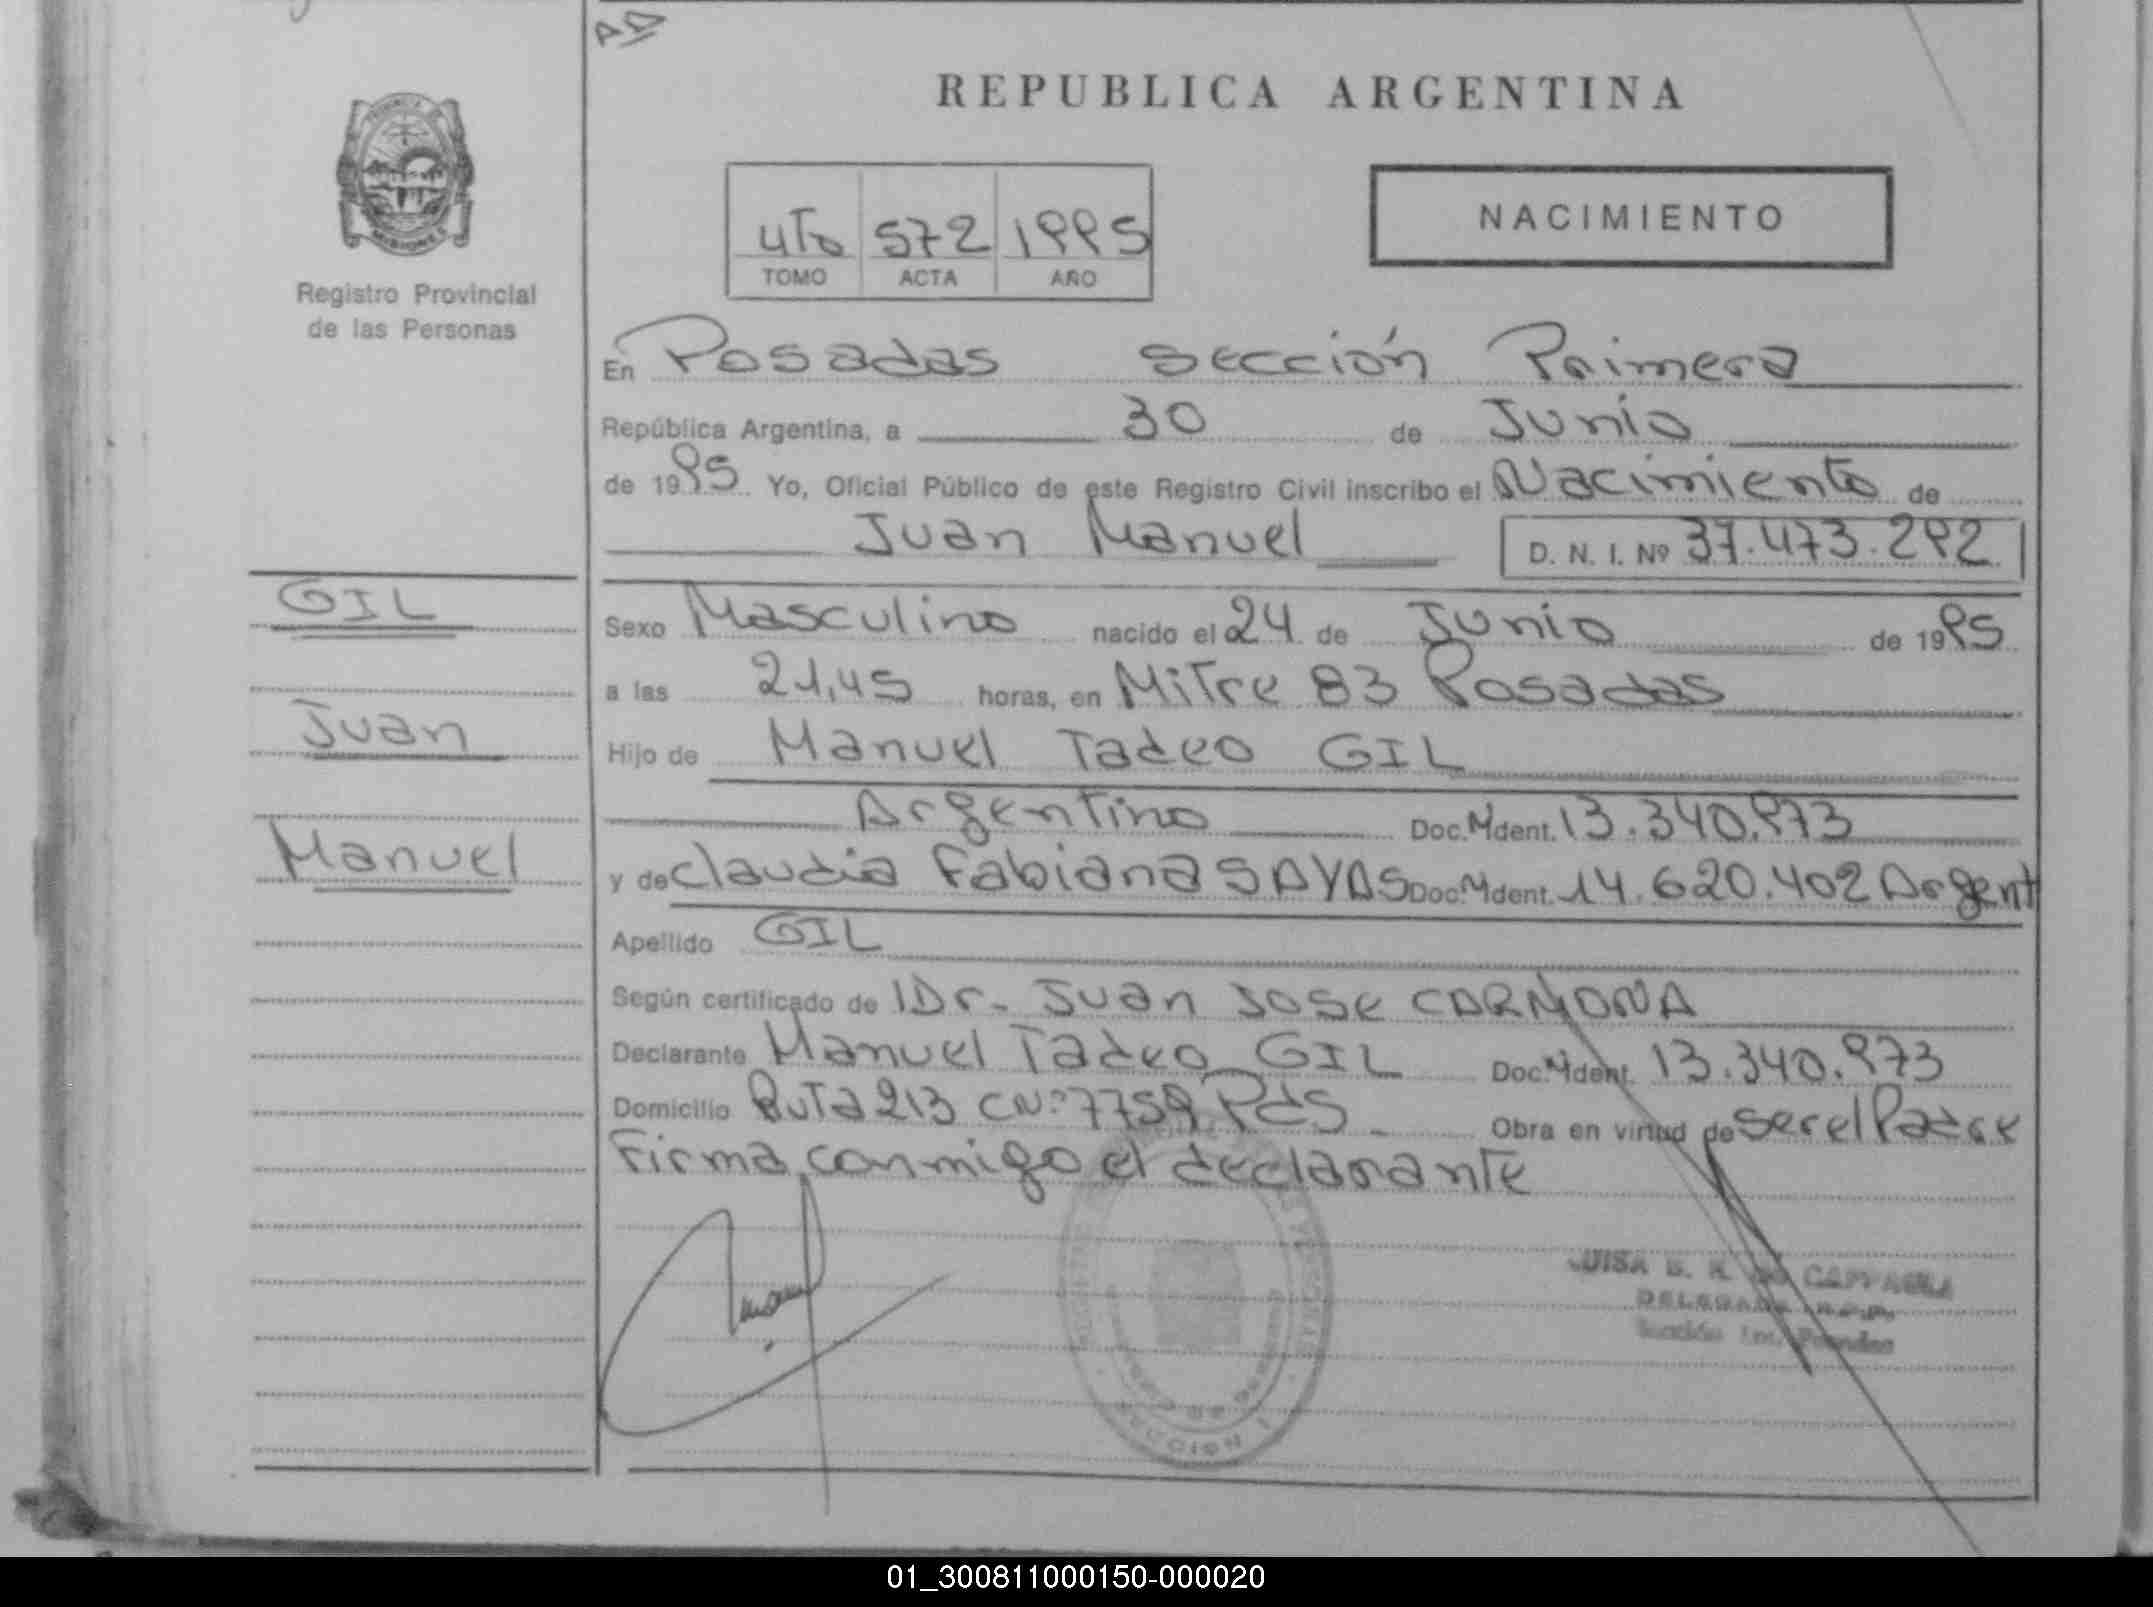 REPUBLICA ARGENTINA
4To 572 1995
TOMO ACTA AÑO
NACIMIENTO
MISIONES
Registro Provincial
de las Personas
En Posadas Sección Primera
República Argentina, a 30 de Junio
de 1995. Yo, Oficial Público de este Registro Civil inscribo el Nacimiento de
Juan Manuel D. N. I. Nº 37.473.292
GIL
Sexo Masculino nacido el 24 de Junio de 1995
a las 21,45 horas, en Mitre 83 Posadas
Juan
Hijo de Manuel Tadeo GIL
Argentino Doc. M Ident. 13.340.973
Manuel
y de Claudia Fabiana SAYAS Doc. M Ident. 14.620.402 Argent
Apellido GIL
Según certificado de Dr. Juan Jose CARMONA
Declarante Manuel Tadeo GIL Doc. M Ident. 13.340.973
Domicilio Ruta 213 CNº 7759 Pdas Obra en virtud de ser el Padre
Firma conmigo el declarante
SECCION
01_300811000150-000020